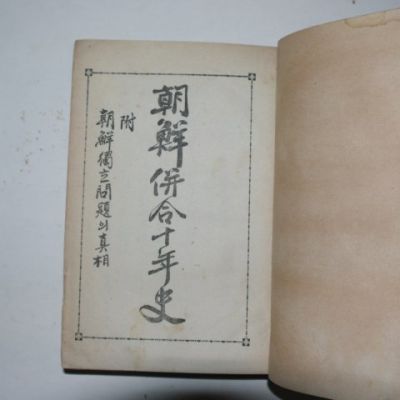 朝鮮併合十年史
附
朝鮮獨立問題의眞相